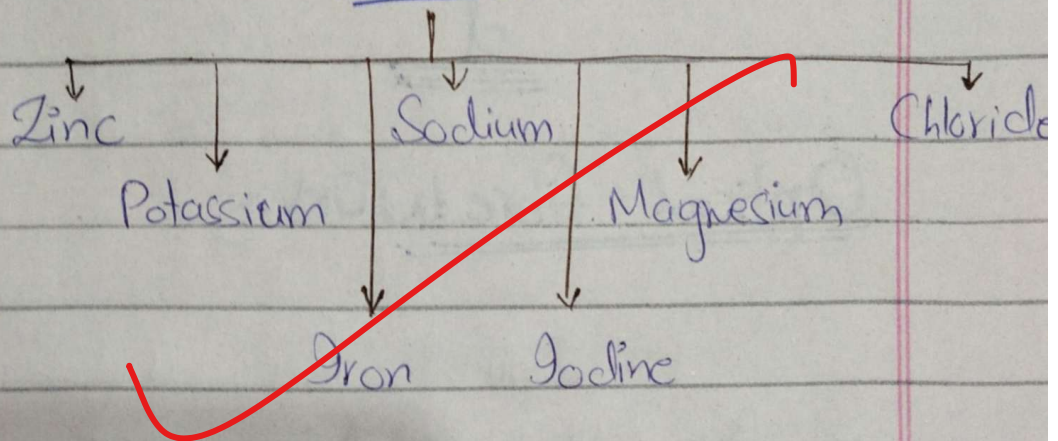 Zinc Sodium Chloride
Potassium Magnesium
Iron Iodine